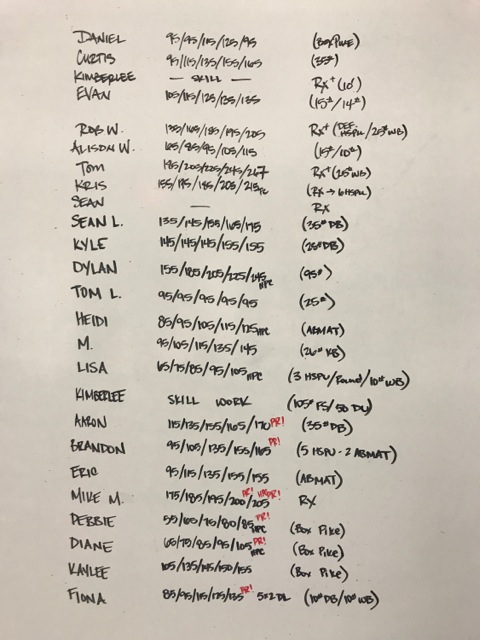 DANIEL 95/95/115/125/95 (BOX PIKE)
CURTIS 95/115/135/155/165 (35#)
KIMBERLEE — SKILL — RX+ (10')
EVAN 105/115/125/135/135 (15#/14#)
ROB W. 135/165/185/195/205 RX+ (DEF. HSPU/25# WB)
ALISON W. 65/85/95/105/115 (15#/10#)
TOM 185/205/225/245/267 RX+ (25# WB)
KRIS 155/175/185/205/215 PC (RX → 6 HSPU)
SEAN — RX
SEAN L. 135/145/155/165/175 (35# DB)
KYLE 145/145/145/155/155 (25# DB)
DYLAN 155/185/205/225/245 HPC (95#)
TOM L. 95/95/95/95/95 (25#)
HEIDI 85/95/105/115/125 HPC (ABMAT)
M. 95/105/115/135/145 (26# KB)
LISA 65/75/85/95/105 HPC (3 HSPU/ROUND/10# WB)
KIMBERLEE SKILL WORK (105# FS/50 DU)
AARON 115/135/155/165/170 PR! (35# DB)
BRANDON 95/105/135/155/165 PR! (5 HSPU - 2 ABMAT)
ERIC 95/115/135/155/155 (ABMAT)
MIKE M. 175/185/195/200 PR!/205 PR! RX
DEBBIE 55/65/75/80/85 PR! HPC (BOX PIKE)
DIANE 65/75/85/95/105 PR! HPC (BOX PIKE)
KAYLEE 105/135/145/150/155 (BOX PIKE)
FIONA 85/95/115/125/135 PR! 5x2 DL (10# DB/10# WB)